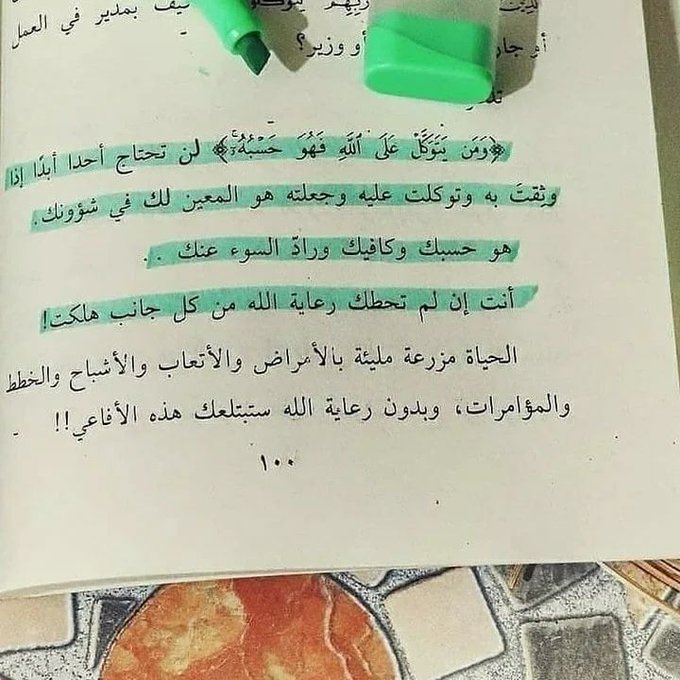 كيف بمدير في العمل
أو وزير؟
﴿وَمَن يَتَوَكَّلْ عَلَى ٱللَّهِ فَهُوَ حَسْبُهُۥٓ﴾ لن تحتاج أحدا أبدًا إذا
وثِقتَ به وتوكلت عليه وجعلته هو المعين لك في شؤونك.
هو حسبك وكافيك ورادّ السوء عنك . .
أنت إن لم تحطك رعاية الله من كل جانب هلكت!
الحياة مزرعة مليئة بالأمراض والأتعاب والأشباح والخطط
والمؤامرات، وبدون رعاية الله ستبتلعك هذه الأفاعي!!
١٠٠